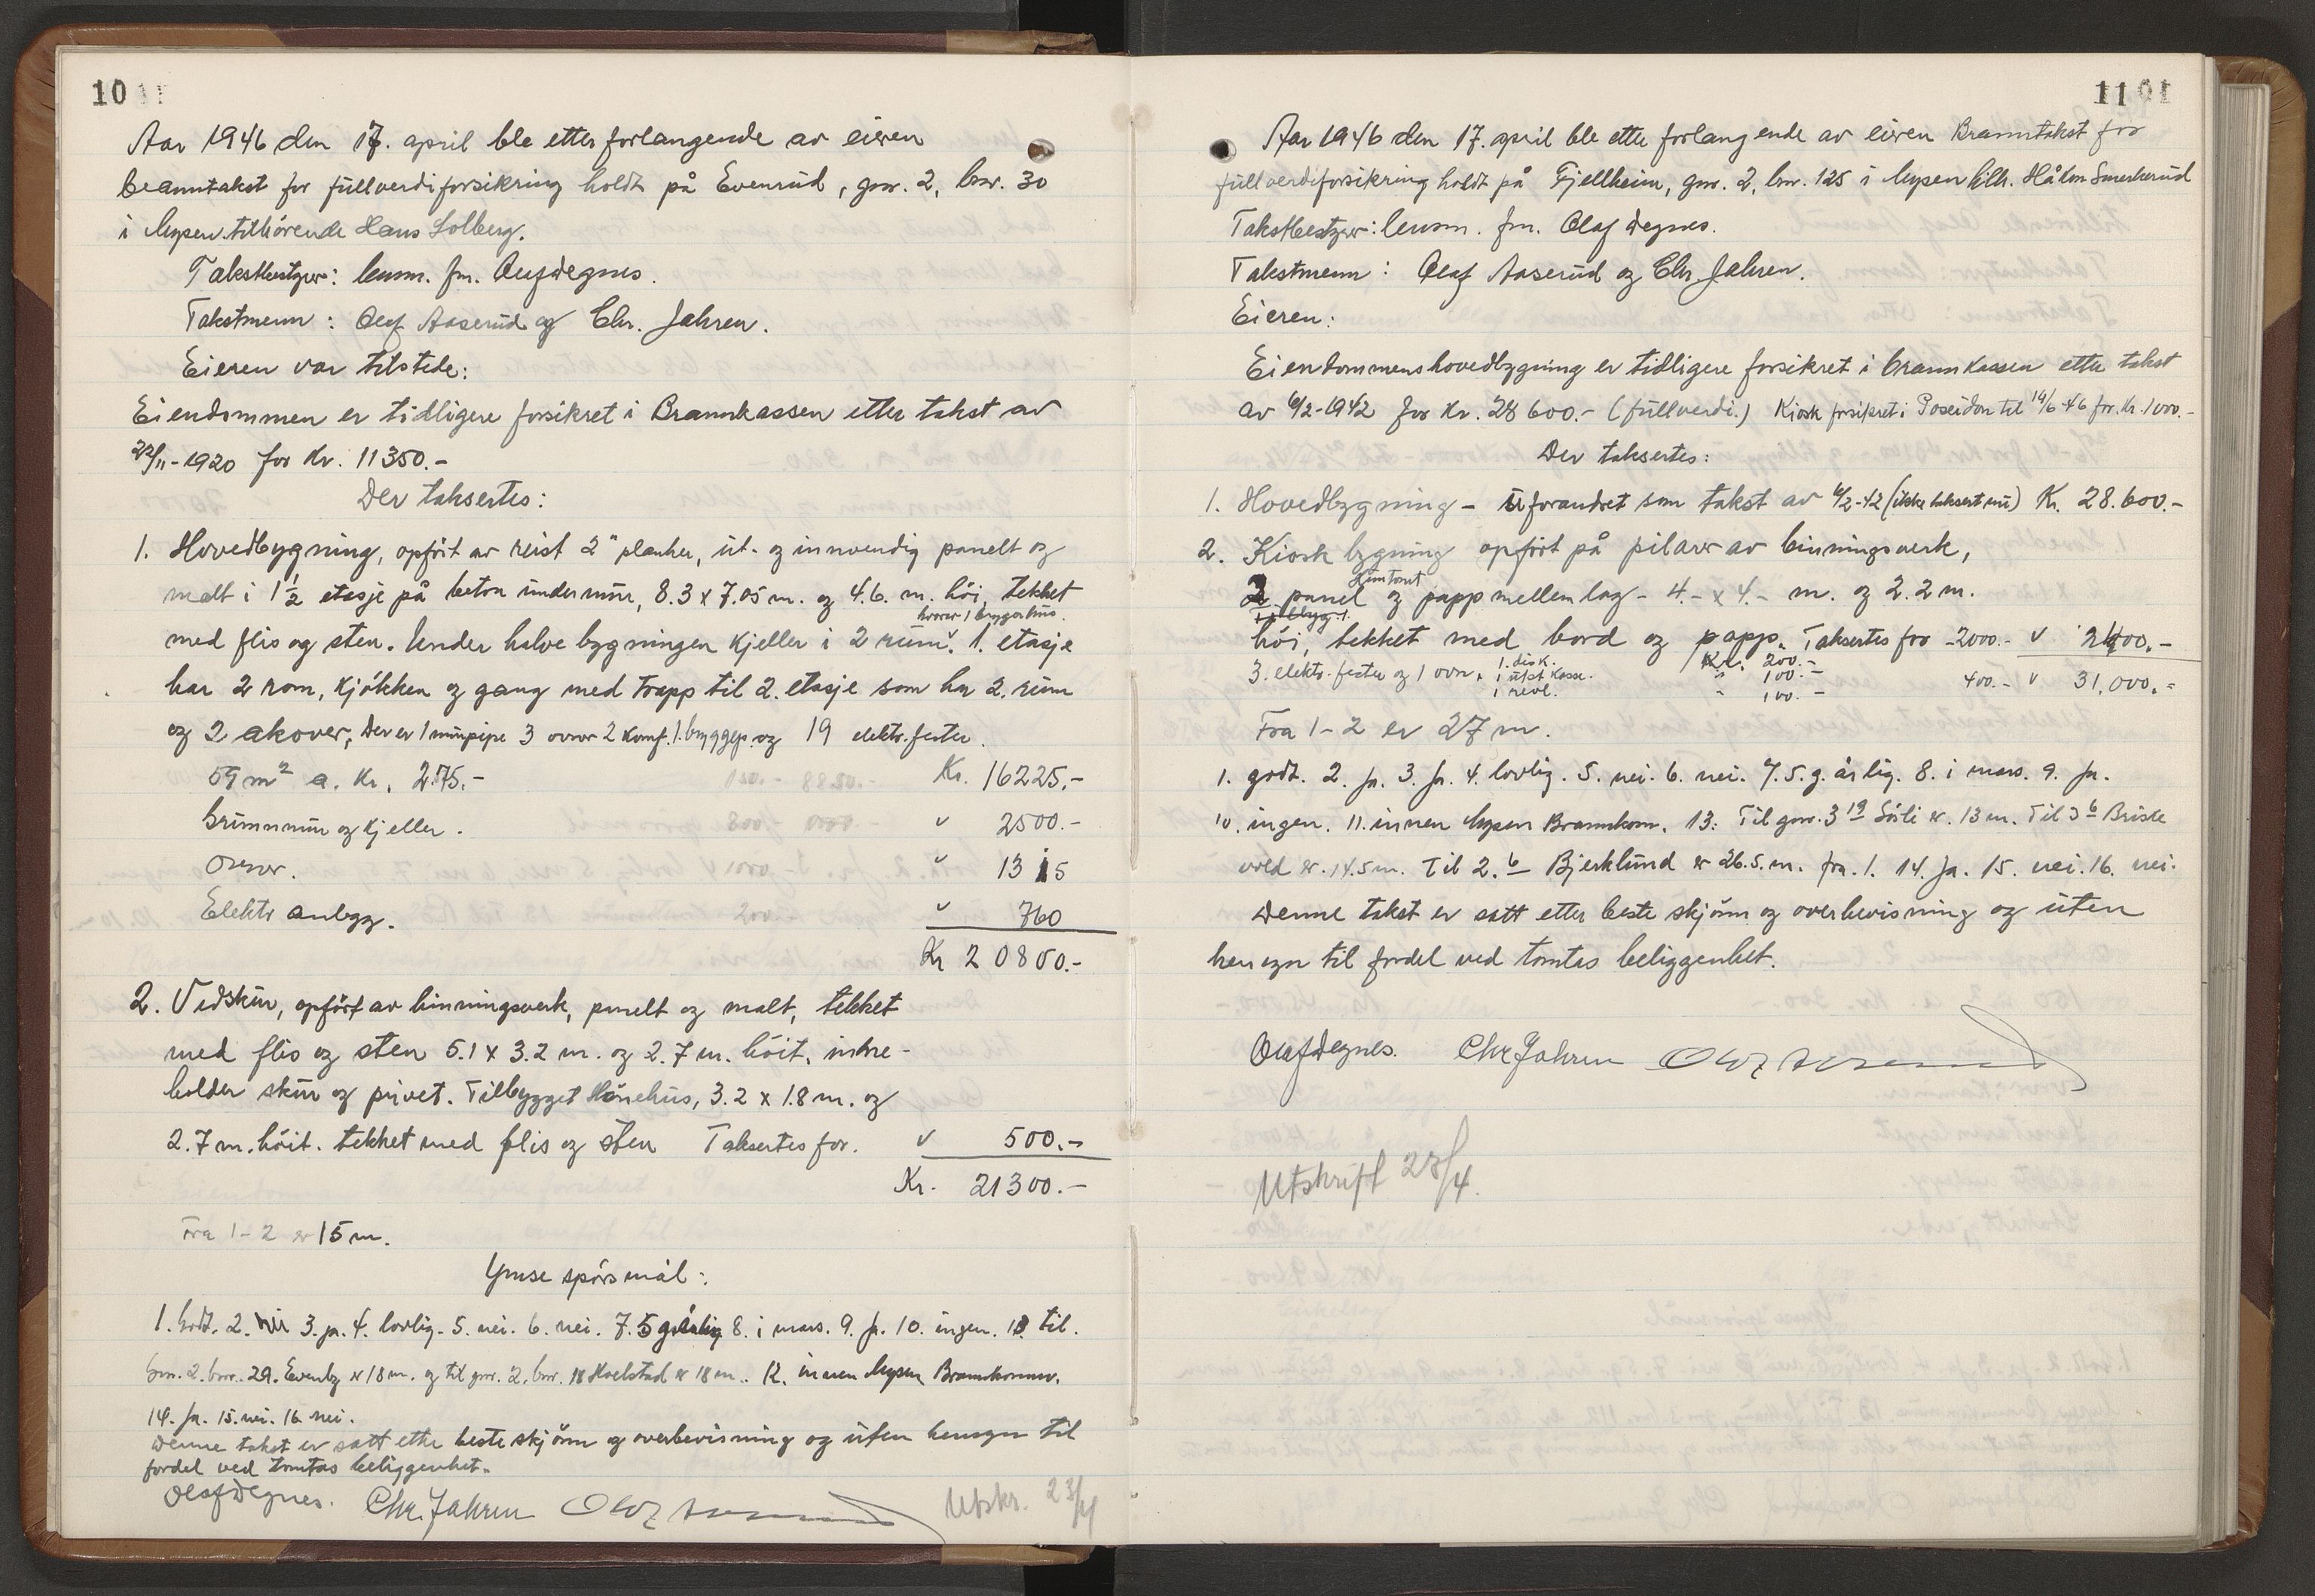 10
Aar 1946 den 17. april ble etter forlangende av eieren
branntakst for fullverdiforsikring holdt på Evenrud, gnr. 2, bnr. 30
i Mysen tilhörende Hans Solberg.
Takstbestyrer: lensm. fm. Olaf Degnes.
Takstmenn: Olaf Aaserud og Chr. Jahren.
Eieren var tilstede:
Eiendommen er tidligere forsikret i Brannkassen etter takst av
22/11-1920 for Kr. 11350.-
Der taksertes:
1. Hovedbygning, opfört av reist 2" planker, ut- og innvendig panelt og
malt i 1½ etasje på betong undermur, 8.3 x 7.05 m. og 4.6. m. höi, tekket
hvorav 1 bryggerhus.
med flis og sten. Under halve bygningen kjeller i 2 rum. 1. etasje
har 2 rom, kjökken og gang med trapp til 2. etasje som har 2. rum
og 2 akover, Der er 1 murpipe 3 ovner 2 komf. 1. bryggep. og 19 elektr. fester.
59 m² a. Kr. 275.- Kr. 16225.-
Grunnmur og kjeller. " 2500.-
Ovner. " 1315
Elektr anlegg. " 760
Kr 20800.-
2. Vedskur, opfört av binningsverk, panelt og malt, tekket
med flis og sten 5.1 x 3.2 m. og 2.7 m. höit, inne-
holder skur og privet. Tilbygget Hönehus, 3.2 x 1.8 m. og
2.7 m. höit. tekket med flis og sten Taksertes for. " 500.-
Kr. 21300.-
Fra 1-2 er 15 m.
Ymse spörsmål:
1. Godt. 2. 3. ja. 4. lovlig. 5. nei. 6. nei. 7. 5 g. årlig 8. i mars. 9. Ja. 10. ingen. 13. til.
Gnr. 2. bnr. 29. Evenby er 18 m. og til gnr. 2. bnr. 18 Moelstad er 18 m.. 12. innen Mysen Brannkommu.
14. Ja. 15. nei. 16. nei.
Denne takst er satt etter beste skjönn og overbevisning og uten hensyn til
fordel ved tomtas beliggenhet.
Olaf Degnes. Chr. Jahren Olaf Aaserud
Utskr. 23/4
11
Aar 1946 den 17. april ble etter forlangende av eieren Branntakst for
fullverdiforsikring holdt på Fjellheim, gnr. 2, bnr. 125 i Mysen tilh. Håkon Smerkerud
Takstbestyrer: lensm. fm. Olaf Degnes.
Takstmenn: Olaf Aaserud og Chr. Jahren.
Eieren:
Eiendommens hovedbygning er tidligere forsikret i brannkassen etter takst
av 6/2-1942 for Kr. 28600.- (fullverdi.) Kiosk forsikret i Poseidon til 14/6-46 for Kr. 1000.-
Der taksertes:
1. Hovedbygning - uforandret som takst av 6/2-42 (ikke taksert nu) Kr. 28.600.-
2. Kiosk bygning opfört på pilarer av binningsverk,
2 panel og papp mellemlag - 4.- x 4.- m. og 2.2 m.
höi, tekket med bord og papp. Taksertes for -2000.- " 2400.-
3. elektr. fester og 1 ovn. 1. disk. Kr. 200.-
1 utst kasse. " 100.- 400.- " 31,000.=
1 reol. " 100.-
Fra 1-2 er 27 m.
1. godt. 2. ja. 3. ja. 4. lovlig. 5. nei. 6. nei. 7. 5. g. årlig. 8. i mars. 9. Ja.
10. ingen. 11. innen Mysen Brannkom. 13: Til gnr. 3 19 Sörli er. 13 m. Til 3 6 Briske
vold er. 14.5 m. Til 2. 6 Bjerklund er 26.5. m. fra. 1. 14. Ja. 15. nei. 16. nei.
Denne takst er satt etter beste skjönn og overbevisning og uten
hensyn til fordel ved tomtas beliggenhet.
Olaf Degnes. Chr Jahren Olaf Aaserud
Utskrift 23/4.